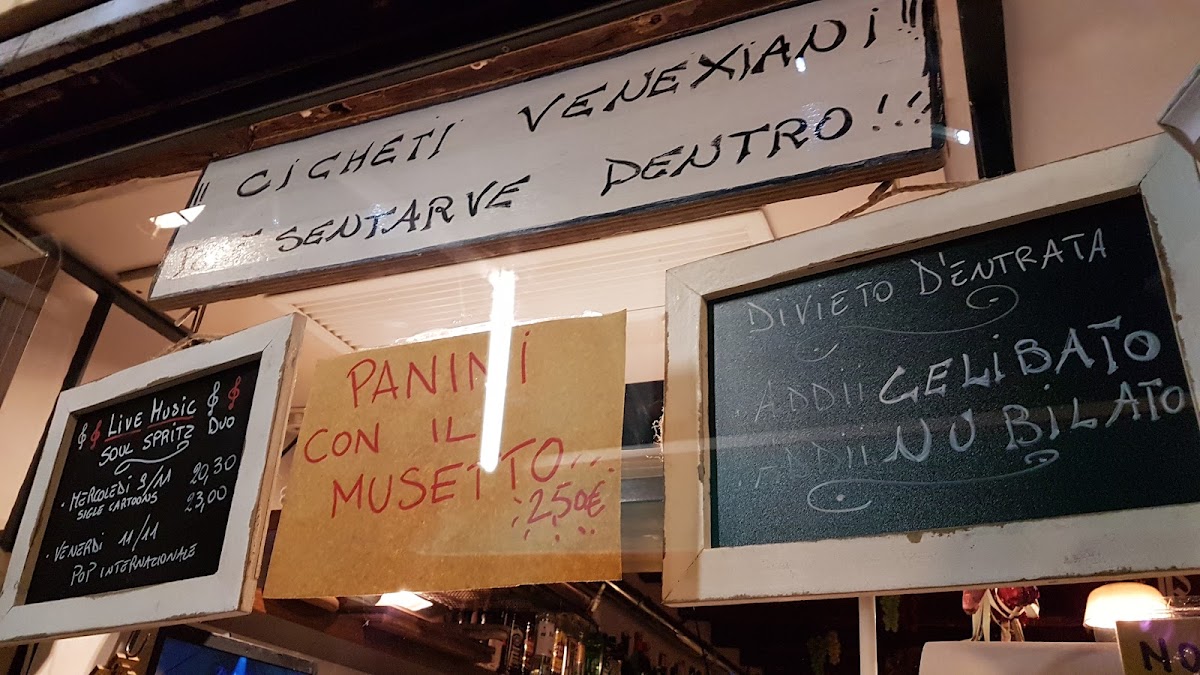 !! CICHETI VENEXIANI !!
SENTARVE DENTRO!!!
LIVE MUSIC
SOUL SPRITZ DUO
· MERCOLEDÌ 9/11 20,30
SIGLE CARTOONS 23,00
· VENERDÌ 11/11
POP INTERNAZIONALE
PANINI
CON IL
MUSETTO!!!
2,50€
DIVIETO D'ENTRATA
ADDII CELIBATO
ADDII NUBILATO
NO